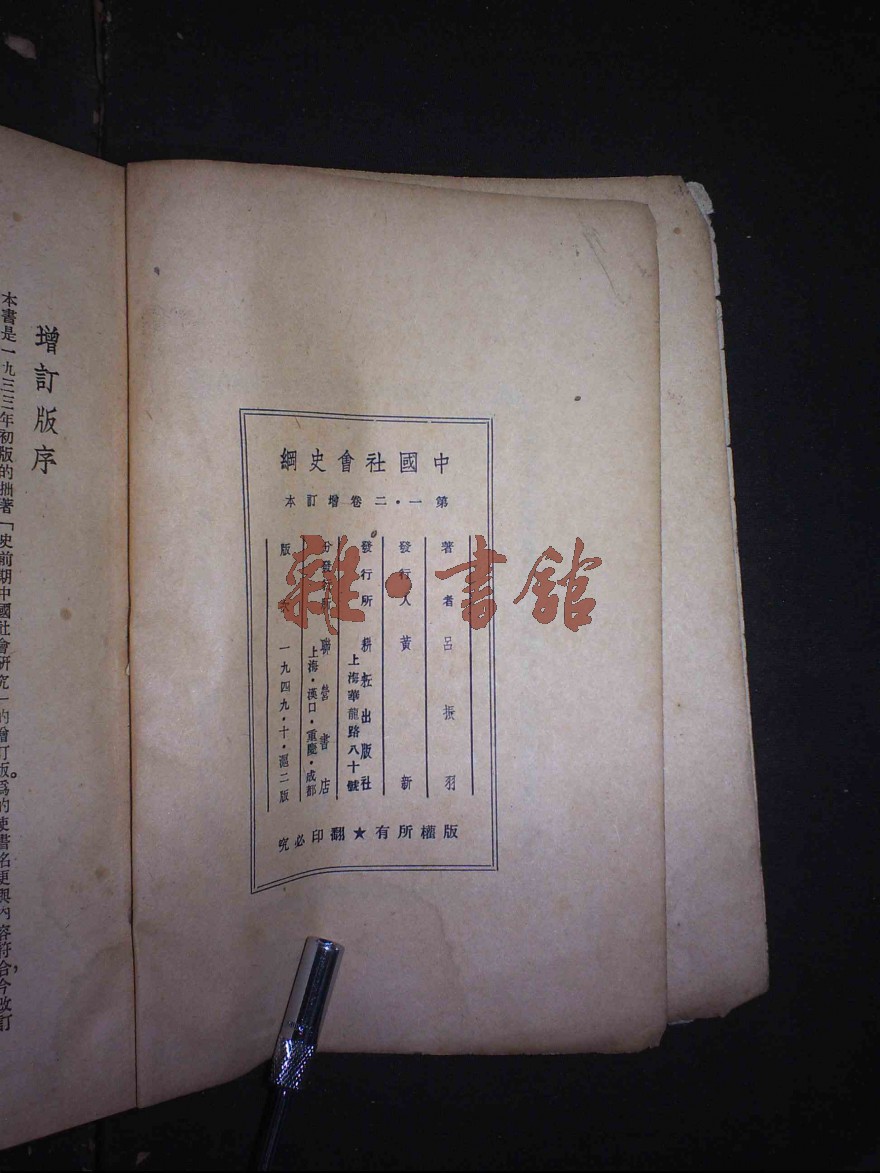 中國社會史綱
第一・二卷增訂本
著者 呂振羽
發行人 黃新
發行所 耕耘出版社
上海華龍路八十號
分發行所 聯營書店
上海・漢口・重慶・成都
版次 一九四九・十・滬二版
版權所有★翻印必究
雜・書館
增訂版序
本書是一九三三年初版的拙著「史前期中國社會研究」的增訂版。爲的使書名更與內容符合，今改訂